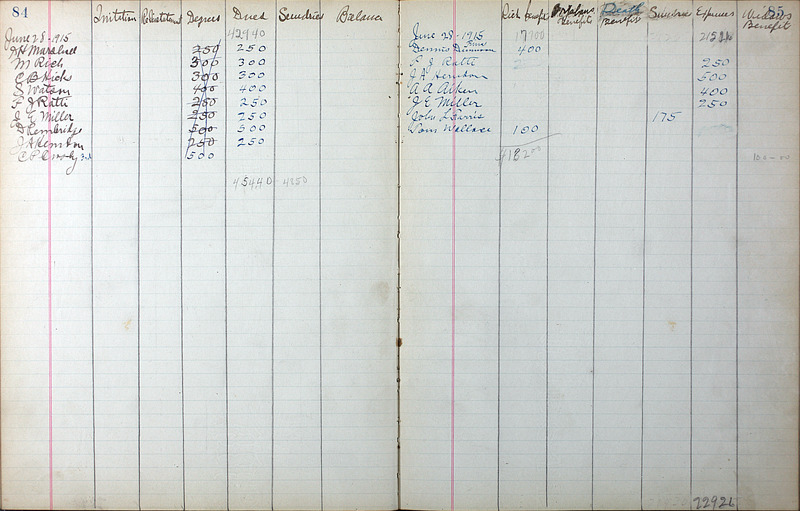 84
Initition Reinstatement Degrees Dues Sundries Balance
42940
June 28-1915
A H Marshel 250 250
M Rich 300 300
C B Hicks 300 300
S Watson 400 400
F J Ratti 250 250
J E Miller 250 250
D Kembridge 500 500
J A Henston 250 250
C P Crosby 500
45440 4850
85
Sick benefit Orphans Benefits Death Benefit Sundries Expenses Widows Benefit
June 28-1915 17900
Dennis 400
F J Ratti 250
J A Henston 500
A A Aiken 400
J E Miller 250
John L Farris 175
Tom Wallace 100
418200
100-00
22926